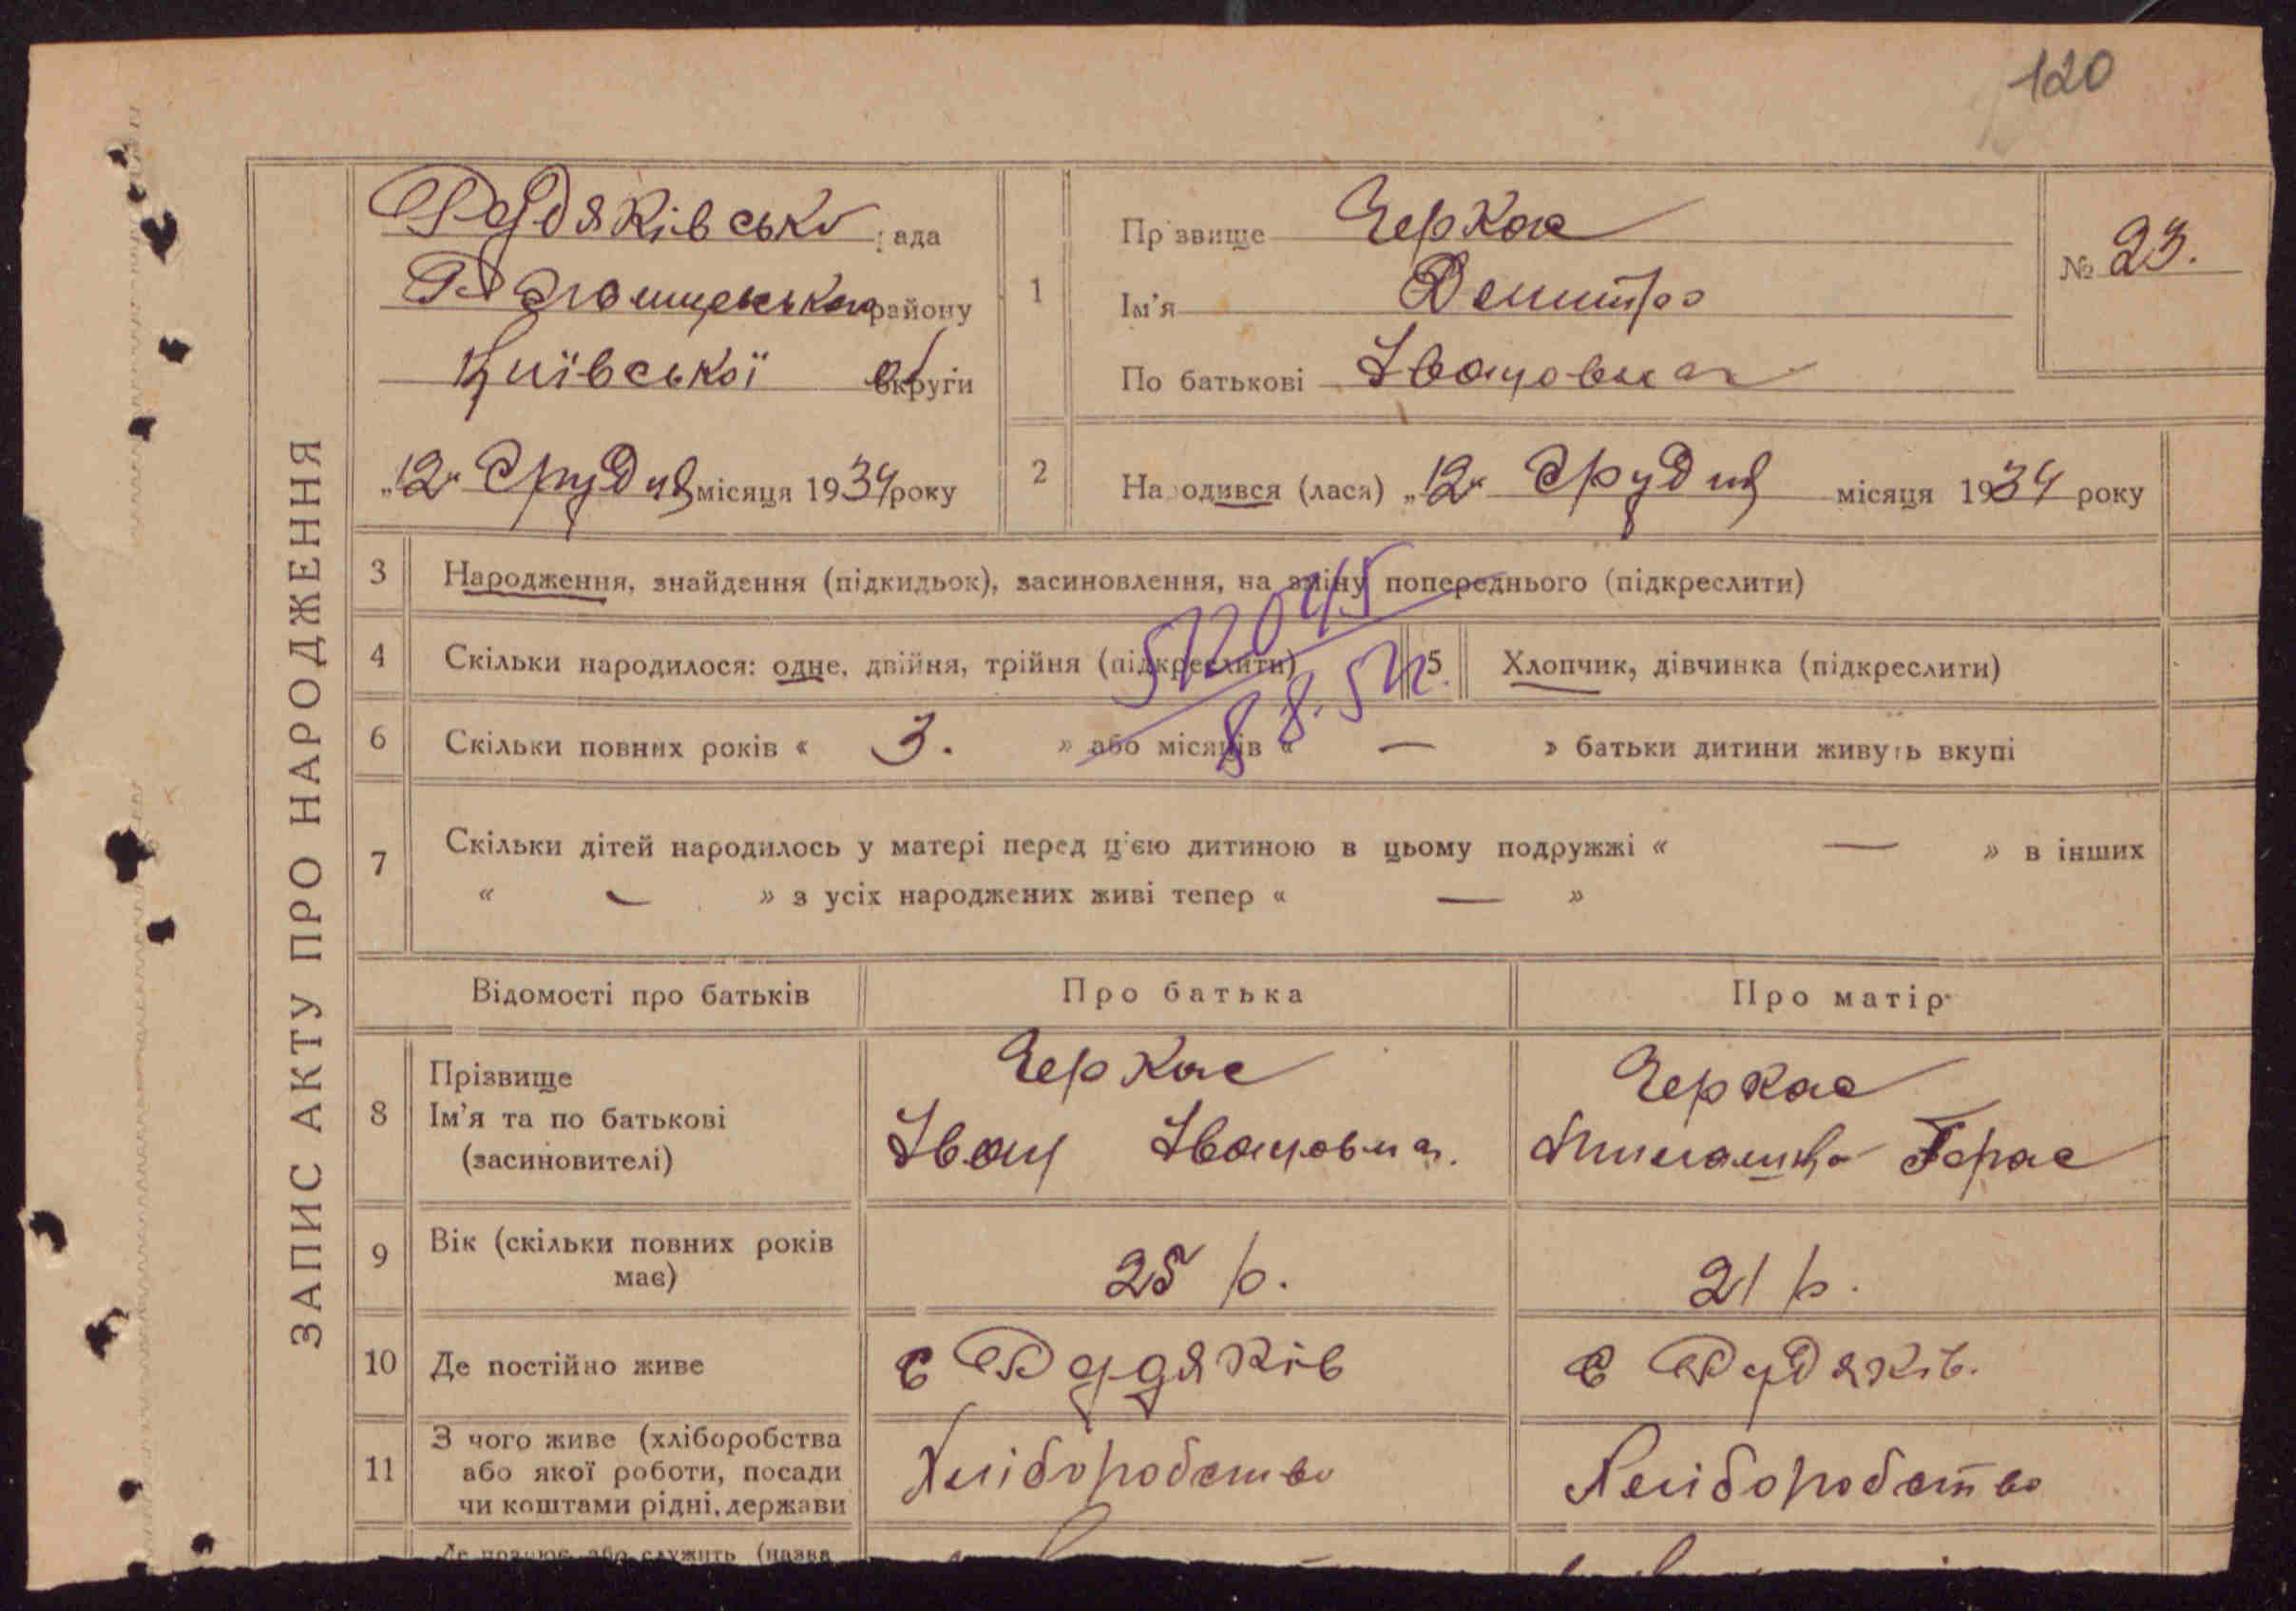 120
ЗАПИС АКТУ ПРО НАРОДЖЕННЯ
Рудяківська рада
району
Київської об округи
„12“ Грудня місяця 1934 року
1
Прізвище Черкас
Ім'я Дмитро
По батькові Іванович
№ 23.
2
Народився (лася) „12“ Грудня місяця 1934 року
3 Народження, знайдення (підкидьок), засиновлення, на зміну попереднього (підкреслити)
4 Скільки народилося: одне, двійня, трійня (підкреслити)
5 Хлопчик, дівчинка (підкреслити)
8.8.52
6 Скільки повних років « 3. » або місяців « — » батьки дитини живуть вкупі
7 Скільки дітей народилось у матері перед ц'єю дитиною в цьому подружжі « — » в інших
« — » з усіх народжених живі тепер « — »
Відомості про батьків Про батька Про матір
8
Прізвище
Ім'я та по батькові
(засиновителі)
Черкас
Іван Іванович.
Черкас
Герас
9 Вік (скільки повних років
має)
25 р.
21 р.
10 Де постійно живе
с Рудяків
с Рудяків.
11
З чого живе (хліборобства
або якої роботи, посади
чи коштами рідні, держави
Хліборобство
Хліборобство
Де працює або служить (назва